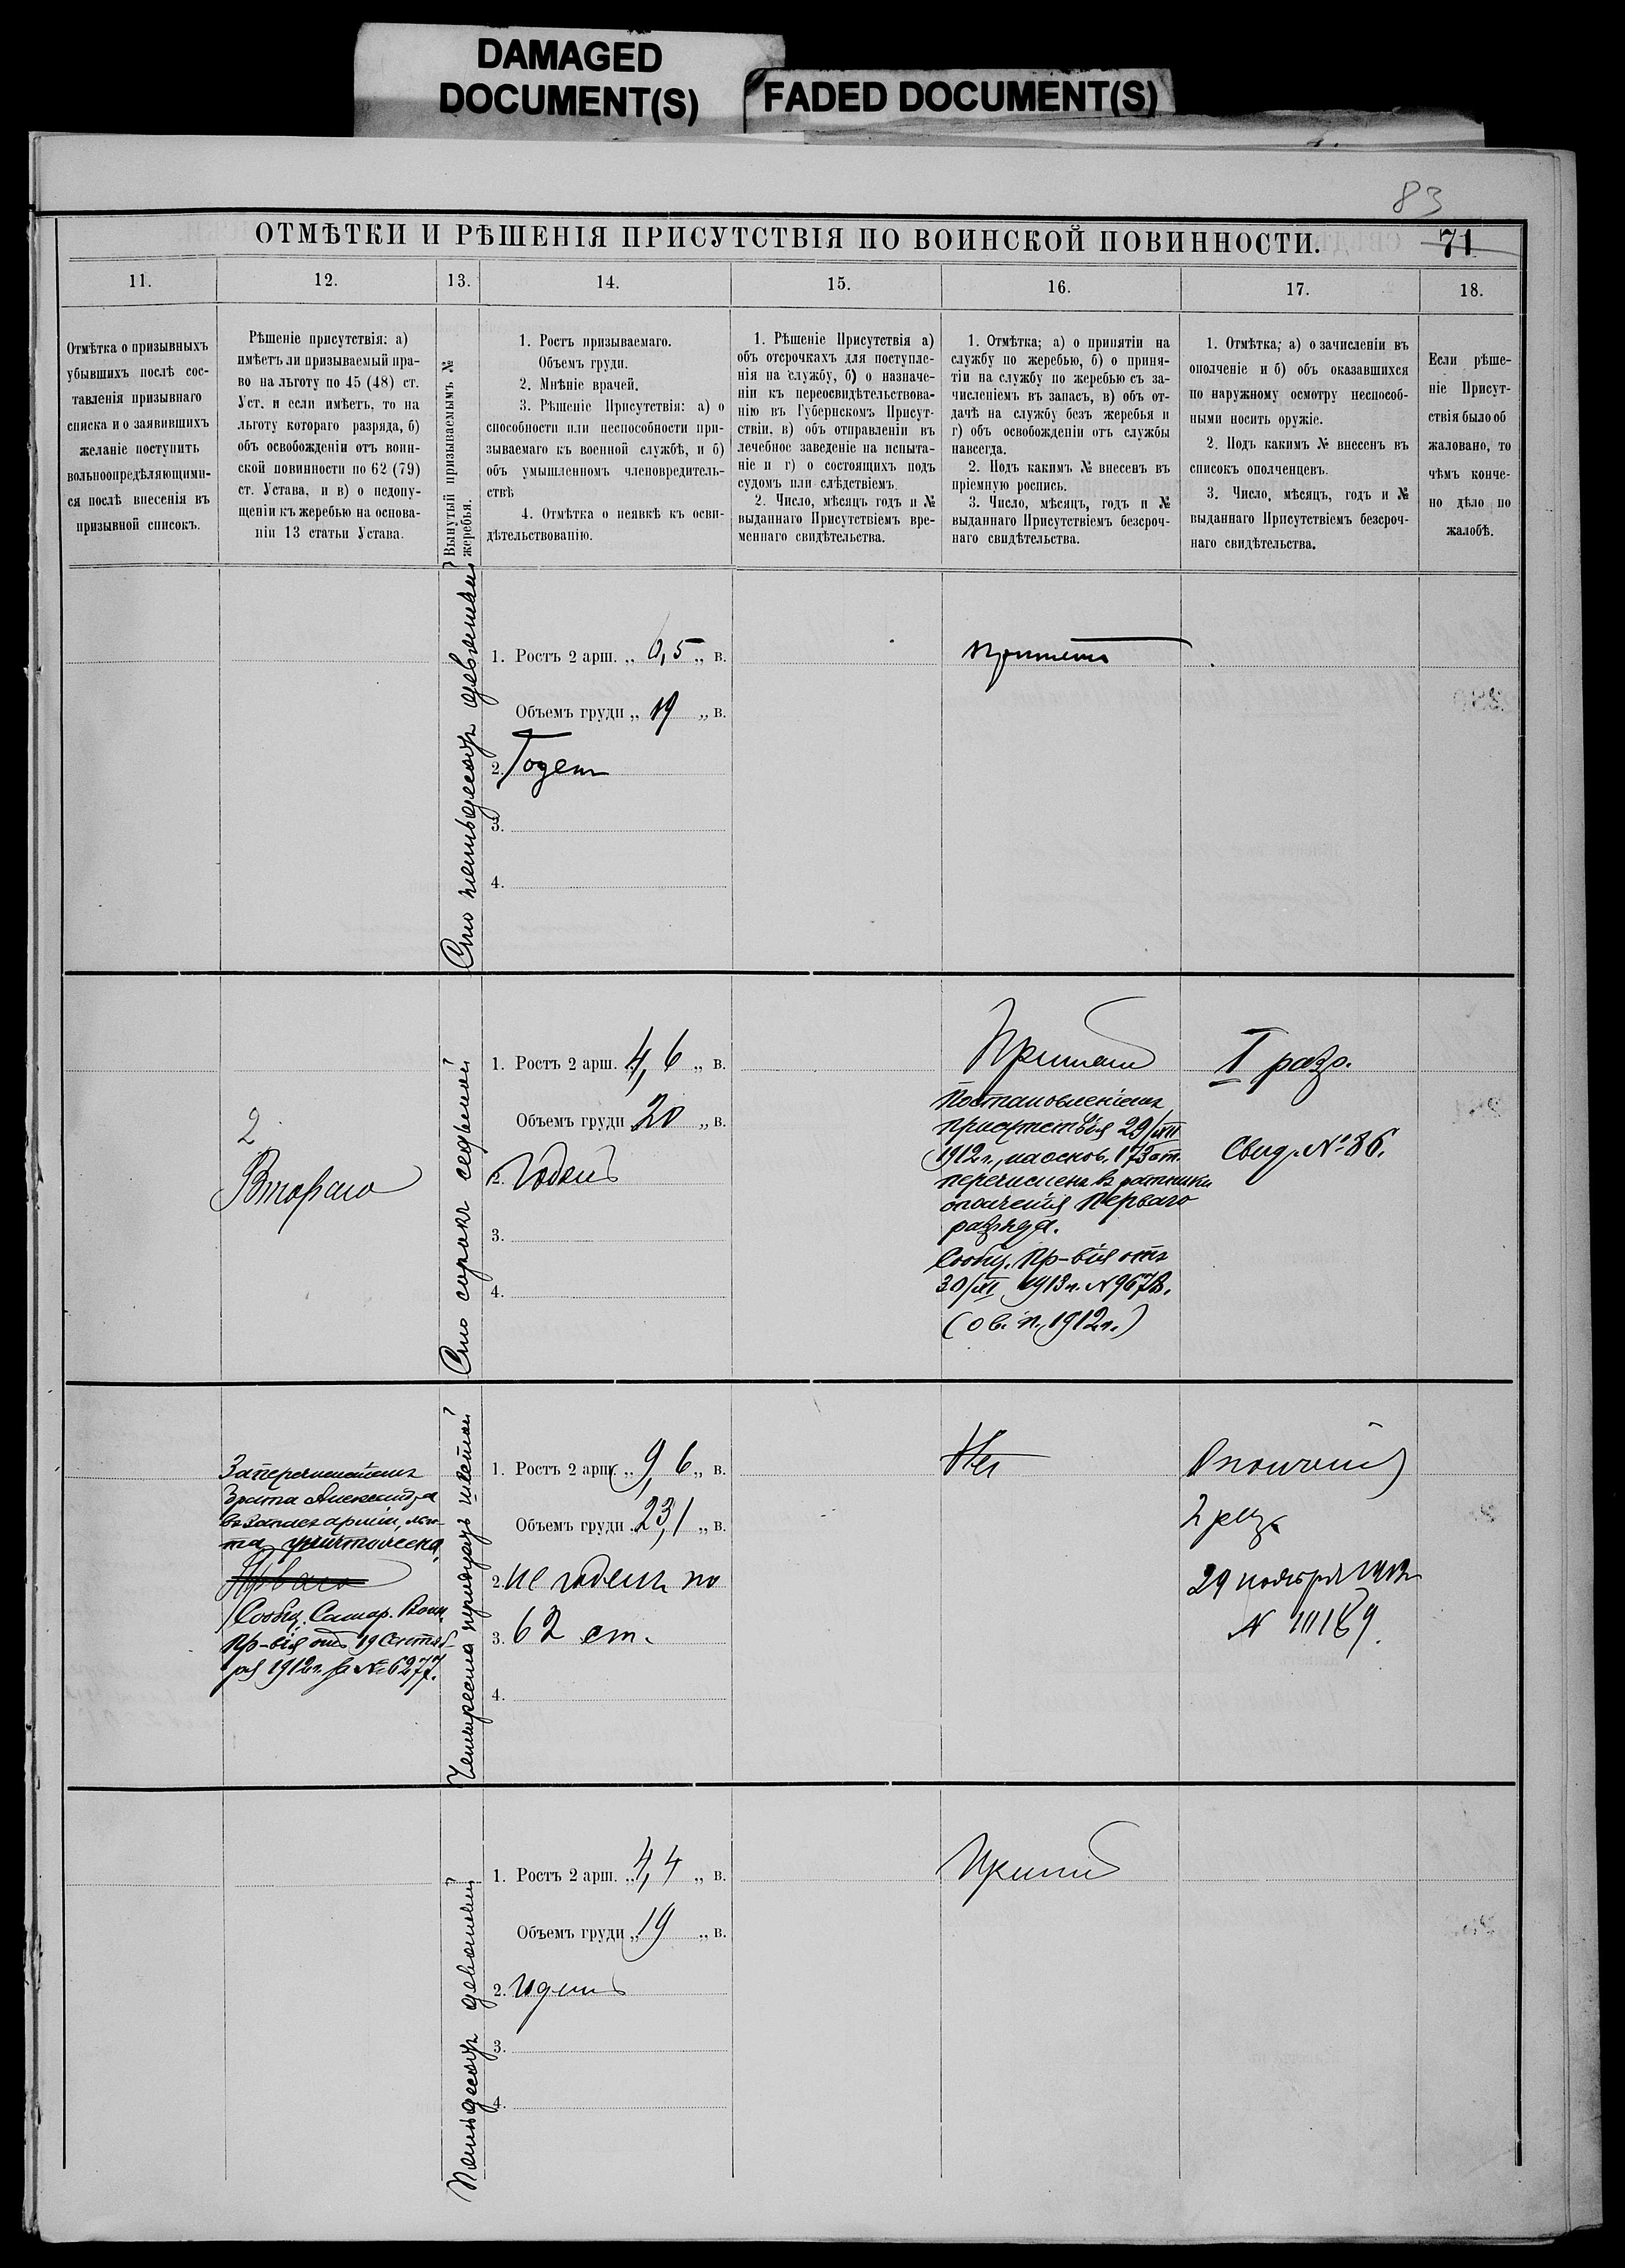 DAMAGED
DOCUMENT(S)
FADED DOCUMENT(S)
83
ОТМѢТКИ И РѢШЕНІЯ ПРИСУТСТВІЯ ПО ВОИНСКОЙ ПОВИННОСТИ.
71
11.
12.
13.
14.
15.
16.
17.
18.
Отмѣтка о призывныхъ
убывшихъ послѣ сос-
тавленія призывнаго
списка и о заявившихъ
желаніе поступить
вольноопредѣляющими-
ся послѣ внесенія въ
призывной списокъ.
Рѣшеніе присутствія: а)
имѣетъ ли призываемый пра-
во на льготу по 45 (48) ст.
Уст. и если имѣетъ, то на
льготу котораго разряда, б)
объ освобожденіи отъ воин-
ской повинности по 62 (79)
ст. Устава, и в) о недопу-
щеніи къ жеребью на основа-
ніи 13 статьи Устава.
Вынутый призываемымъ №
жеребья.
1. Ростъ призываемаго.
Объемъ груди.
2. Мнѣніе врачей.
3. Рѣшеніе Присутствія: а) о
способности или неспособности при-
зываемаго къ военной службѣ, и б)
объ умышленномъ членовредитель-
ствѣ
4. Отмѣтка о неявкѣ къ осви-
дѣтельствованію.
1. Рѣшеніе Присутствія а)
объ отсрочкахъ для поступле-
нія на службу, б) о назначе-
ніи къ переосвидѣтельствова-
нію въ Губернскомъ Присут-
ствіи. в) объ отправленіи въ
лечебное заведеніе на испыта-
ніе и г) о состоящихъ подъ
судомъ или слѣдствіемъ.
2. Число, мѣсяцъ годъ и №
выданнаго Присутствіемъ вре-
меннаго свидѣтельства.
1. Отмѣтка; а) о принятіи на
службу по жеребью, б) о приня-
тіи на службу по жеребью съ за-
численіемъ въ запасъ, в) объ от-
дачѣ на службу безъ жеребья и
г) объ освобожденіи отъ службы
навсегда.
2. Подъ какимъ № внесенъ въ
пріемную роспись.
3. Число, мѣсяцъ, годъ и №
выданнаго Присутствіемъ безсроч-
наго свидѣтельства.
1. Отмѣтка; а) о зачисленіи въ
ополченіе и б) объ оказавшихся
по наружному осмотру неспособ-
ными носить оружіе.
2. Подъ какимъ № внесенъ въ
списокъ ополченцевъ.
3. Число, мѣсяцъ, годъ и №
выданнаго Присутствіемъ безсроч-
наго свидѣтельства.
Если рѣше-
ніе Присут-
ствія было об
жаловано, то
чѣмъ конче-
но дѣло по
жалобѣ.
Сто пятьдесятъ девятый
1. Ростъ 2 арш. „ 0,5 „ в.
Объемъ груди „ 19 „ в.
2. Годенъ
3.
4.
принятъ
2
Втораго
Сто сорокъ седьмой
1. Ростъ 2 арш. 4,6 „ в.
Объемъ груди 20 „ в.
2. Годенъ
3.
4.
Принятъ
Постановленіемъ
присутствія 29/XII
1912 г., на основ. 173 ст.
перечисленъ въ ратники
ополченія перваго
разряда.
Сообщ. Пр-вія отъ
30/XI 1913 г. № 9678.
(о в. п. 1912 г.)
I разр.
Свид. № 86.
За перечисленіемъ
брата Александра
въ запасъ армiи, льго-
та уничтожена
Перваго
Сообщ. Самар. Воин.
Пр-вія отъ 19 Сентяб-
ря 1912 г. за № 6277.
Четыреста тридцать шестой
1. Ростъ 2 арш. „ 9,6 „ в.
Объемъ груди 23,1 „ в.
2. не годенъ по
3. 62 ст.
4.
Нет
Ополчені
2 раз
29 ноября 1912
№ 11189.
Пятьдесятъ девятый
1. Ростъ 2 арш. „ 4,4 „ в.
Объемъ груди „ 19 „ в.
2. годенъ
3.
4.
Принятъ